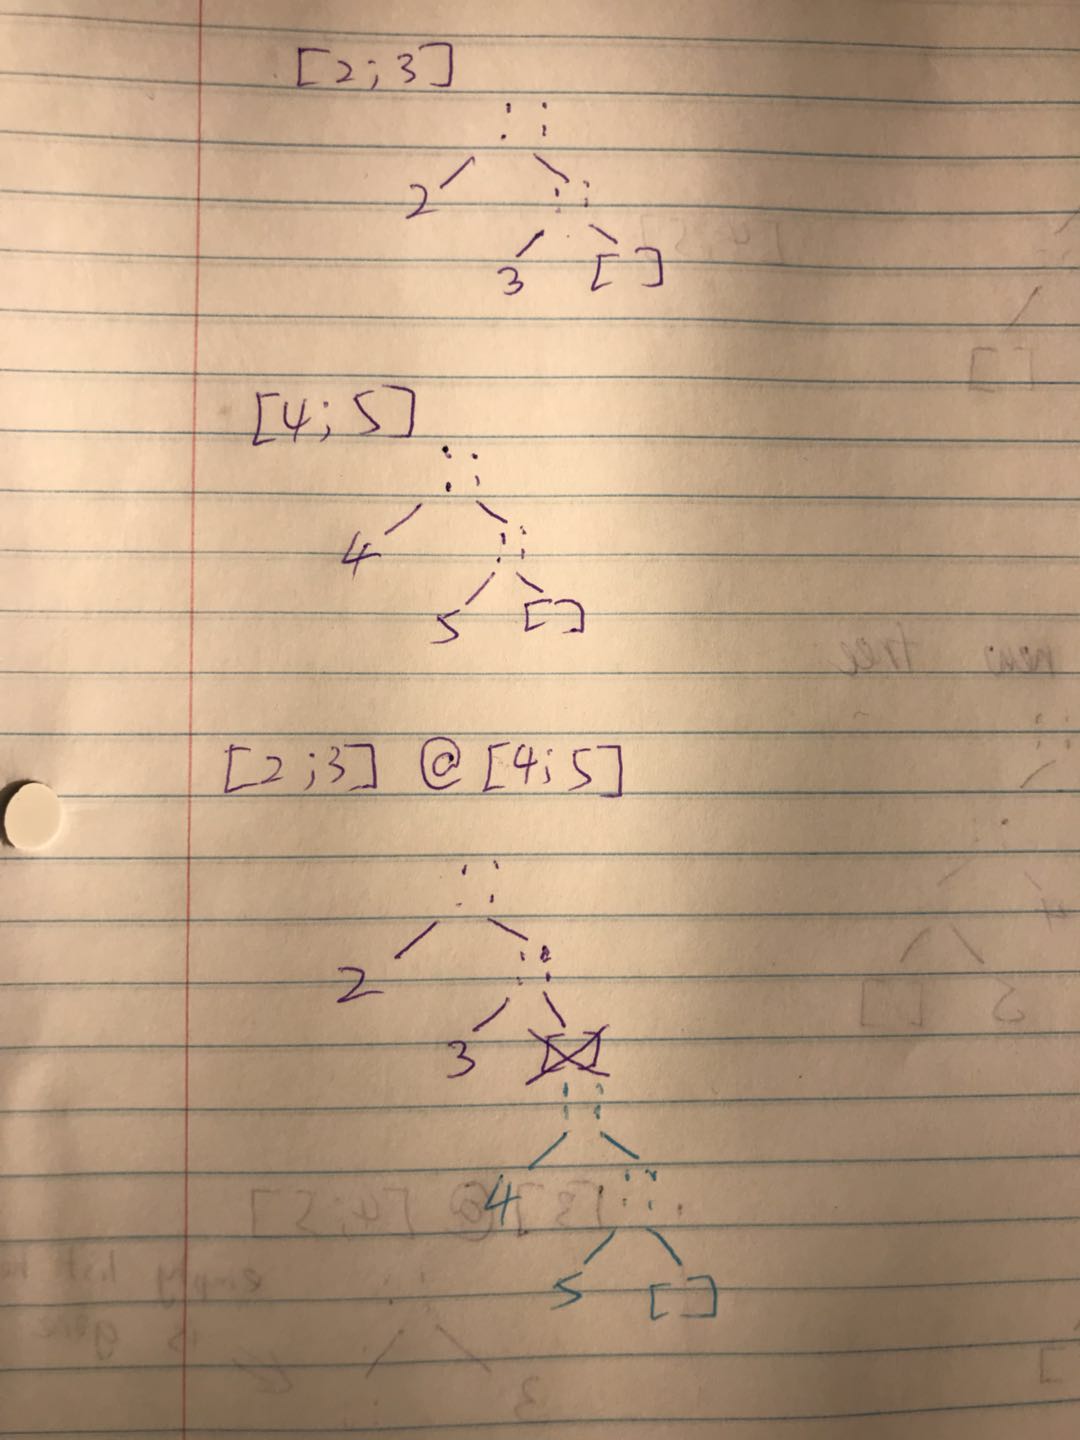 [2;3]
::
2 ::
3 []
[4;5]
::
4 ::
5 []
[2;3] @ [4;5]
::
2 ::
3 []
::
4 ::
5 []